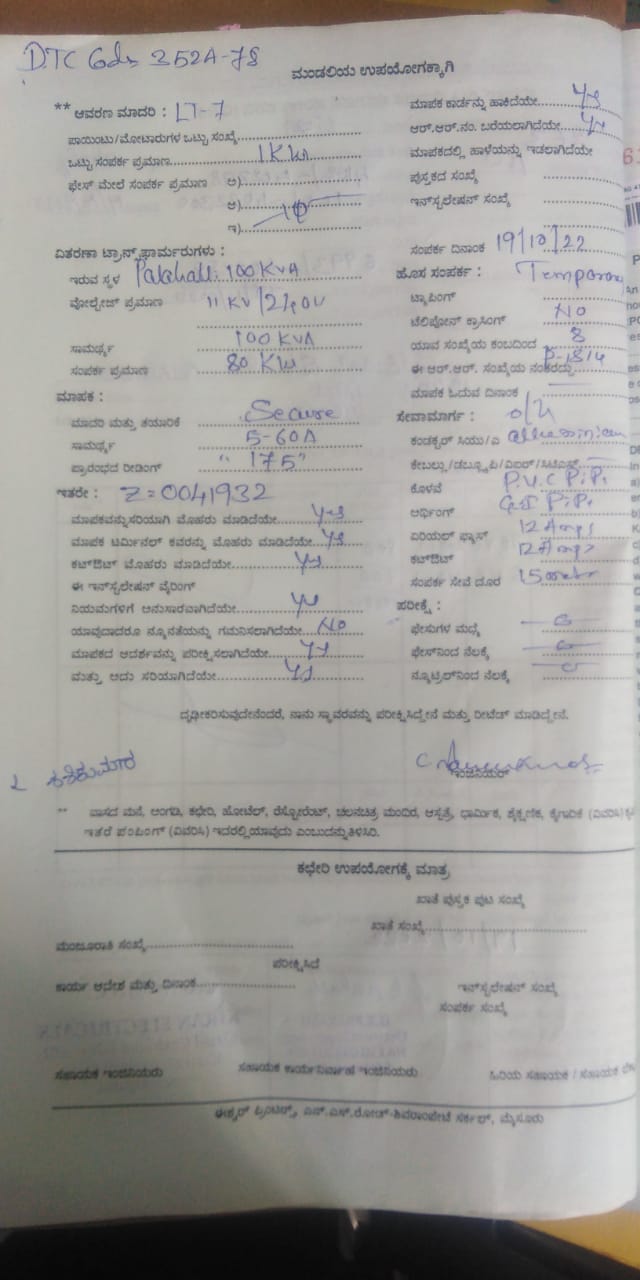 DTC Code 352A-78
ಮಂಡಲಿಯ ಉಪಯೋಗಕ್ಕಾಗಿ
** ಆವರಣ ಮಾದರಿ : LT-7
ಪಾಯಿಂಟು/ಮೋಟಾರುಗಳ ಒಟ್ಟು ಸಂಖ್ಯೆ
ಒಟ್ಟು ಸಂಪರ್ಕ ಪ್ರಮಾಣ 1KW
ಫೇಸ್ ಮೇಲೆ ಸಂಪರ್ಕ ಪ್ರಮಾಣ ಅ)
ಆ)
ಇ) 1φ
ವಿತರಣಾ ಟ್ರಾನ್ಸ್‌ಫಾರ್ಮರುಗಳು :
ಇರುವ ಸ್ಥಳ Palahalli 100 KVA
ವೋಲ್ಟೇಜ್ ಪ್ರಮಾಣ 11 KV/240V
ಸಾಮರ್ಥ್ಯ 100 KVA
ಸಂಪರ್ಕ ಪ್ರಮಾಣ 80 KW
ಮಾಪಕ :
ಮಾದರಿ ಮತ್ತು ತಯಾರಿಕೆ Secure
ಸಾಮರ್ಥ್ಯ 5-60A
ಪ್ರಾರಂಭದ ರೀಡಿಂಗ್ " 175 "
ಇತರೇ : Z=0041932
ಮಾಪಕವನ್ನು ಸರಿಯಾಗಿ ಮೊಹರು ಮಾಡಿದೆಯೇ Yes
ಮಾಪಕ ಟರ್ಮಿನಲ್ ಕವರನ್ನು ಮೊಹರು ಮಾಡಿದೆಯೇ Yes
ಕಟ್‌ಔಟ್ ಮೊಹರು ಮಾಡಿದೆಯೇ Yes
ಈ ಇನ್‌ಸ್ಟಲೇಷನ್ ವೈರಿಂಗ್
ನಿಯಮಗಳಿಗೆ ಅನುಸಾರವಾಗಿದೆಯೇ Yes
ಯಾವುದಾದರೂ ನ್ಯೂನತೆಯನ್ನು ಗಮನಿಸಲಾಗಿದೆಯೇ No
ಮಾಪಕದ ಆದರ್ಶವನ್ನು ಪರೀಕ್ಷಿಸಲಾಗಿದೆಯೇ Yes
ಮತ್ತು ಅದು ಸರಿಯಾಗಿದೆಯೇ Yes
ಮಾಪಕ ಕಾರ್ಡನ್ನು ಹಾಕಿದೆಯೇ Yes
ಆರ್.ಆರ್.ನಂ. ಬರೆಯಲಾಗಿದೆಯೇ Yes
ಮಾಪಕದಲ್ಲಿ ಹಾಳೆಯನ್ನು ಇಡಲಾಗಿದೆಯೇ
ಪುಸ್ತಕದ ಸಂಖ್ಯೆ
ಇನ್‌ಸ್ಟಲೇಷನ್ ಸಂಖ್ಯೆ
ಸಂಪರ್ಕ ದಿನಾಂಕ 19/10/22
ಹೊಸ ಸಂಪರ್ಕ : Temporary
ಟ್ಯಾಪಿಂಗ್
ಟೆಲಿಫೋನ್ ಕ್ರಾಸಿಂಗ್ NO
ಯಾವ ಸಂಖ್ಯೆಯ ಕಂಬದಿಂದ 8
ಈ ಆರ್.ಆರ್. ಸಂಖ್ಯೆಯ ನಂತರದ್ದು
ಮಾಪಕ ಓದುವ ದಿನಾಂಕ
ಸೇವಾಮಾರ್ಗ : o/h
ಕಂಡಕ್ಟರ್ ಸಿಯು/ಎ
ಕೊಳವೆ P.V.C PiP.
ಅರ್ಥಿಂಗ್ G.I PiP.
ಏರಿಯಲ್ ಫ್ಯೂಸ್ 12 Amps
ಕಟ್‌ಔಟ್ 12 Amps
ಸಂಪರ್ಕ ಸೇವೆ ದೂರ 15 meter
ಪರೀಕ್ಷೆ :
ಫೇಸುಗಳ ಮಧ್ಯೆ
ಫೇಸ್‌ನಿಂದ ನೆಲಕ್ಕೆ
ನ್ಯೂಟ್ರಲ್‌ನಿಂದ ನೆಲಕ್ಕೆ
ದೃಢೀಕರಿಸುವುದೇನೆಂದರೆ, ನಾನು ಸ್ಥಾವರವನ್ನು ಪರೀಕ್ಷಿಸಿದ್ದೇನೆ ಮತ್ತು ರೀಟೆಡ್ ಮಾಡಿದ್ದೇನೆ.
ಶಶಿಕುಮಾರ
ಇಂಜಿನಿಯರ್
** ವಾಸದ ಮನೆ, ಅಂಗಡಿ, ಕಛೇರಿ, ಹೋಟೆಲ್, ರೆಸ್ಟೋರೆಂಟ್, ಚಲನಚಿತ್ರ ಮಂದಿರ, ಆಸ್ಪತ್ರೆ, ಧಾರ್ಮಿಕ, ಶೈಕ್ಷಣಿಕ, ಕೈಗಾರಿಕೆ (ವಿವರಿಸಿ)
ಇತರೆ ಪಂಪಿಂಗ್ (ವಿವರಿಸಿ) ಇದರಲ್ಲಿ ಯಾವುದು ಎಂಬುದನ್ನು ತಿಳಿಸಿರಿ.
ಕಛೇರಿ ಉಪಯೋಗಕ್ಕೆ ಮಾತ್ರ
ಖಾತೆ ಪುಸ್ತಕ ಪುಟ ಸಂಖ್ಯೆ
ಖಾತೆ ಸಂಖ್ಯೆ
ಮಂಜೂರಾತಿ ಸಂಖ್ಯೆ
ಪರೀಕ್ಷಿಸಿದೆ
ಕಾರ್ಯ ಆದೇಶ ಮತ್ತು ದಿನಾಂಕ
ಇನ್‌ಸ್ಟಲೇಷನ್ ಸಂಖ್ಯೆ
ಸಂಪರ್ಕ ಸಂಖ್ಯೆ
ಸಹಾಯಕ ಇಂಜಿನಿಯರು ಸಹಾಯಕ ಕಾರ್ಯನಿರ್ವಾಹಕ ಇಂಜಿನಿಯರು ಹಿರಿಯ ಸಹಾಯಕ / ಸಹಾಯಕ
ಈಶ್ವರ್ ಪ್ರಿಂಟರ್ಸ್, ಎನ್.ಎಸ್.ರೋಡ್-ಶಿವರಾಂಪೇಟೆ ಸರ್ಕಲ್, ಮೈಸೂರು